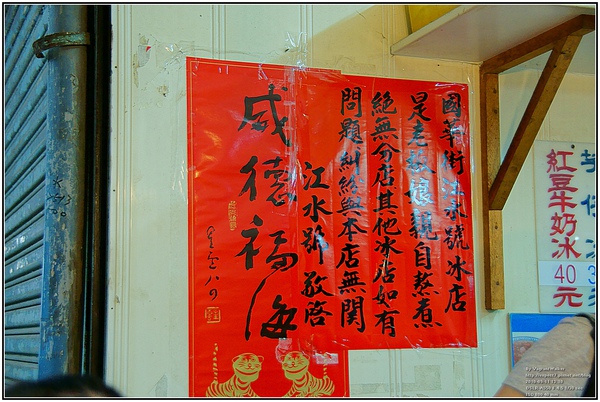 國華街江水號冰店
是老板娘親自熬煮
絕無分店其他冰店如有
問題糾紛與本店無関
江水號敬啓
威德福海
紅豆牛奶冰
40元